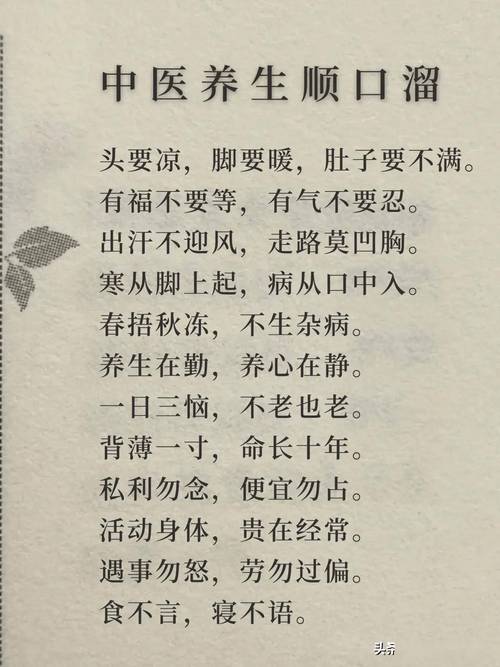 中医养生顺口溜
头要凉，脚要暖，肚子要不满。
有福不要等，有气不要忍。
出汗不迎风，走路莫凹胸。
寒从脚上起，病从口中入。
春捂秋冻，不生杂病。
养生在勤，养心在静。
一日三恼，不老也老。
背薄一寸，命长十年。
私利勿念，便宜勿占。
活动身体，贵在经常。
遇事勿怒，劳勿过偏。
食不言，寝不语。